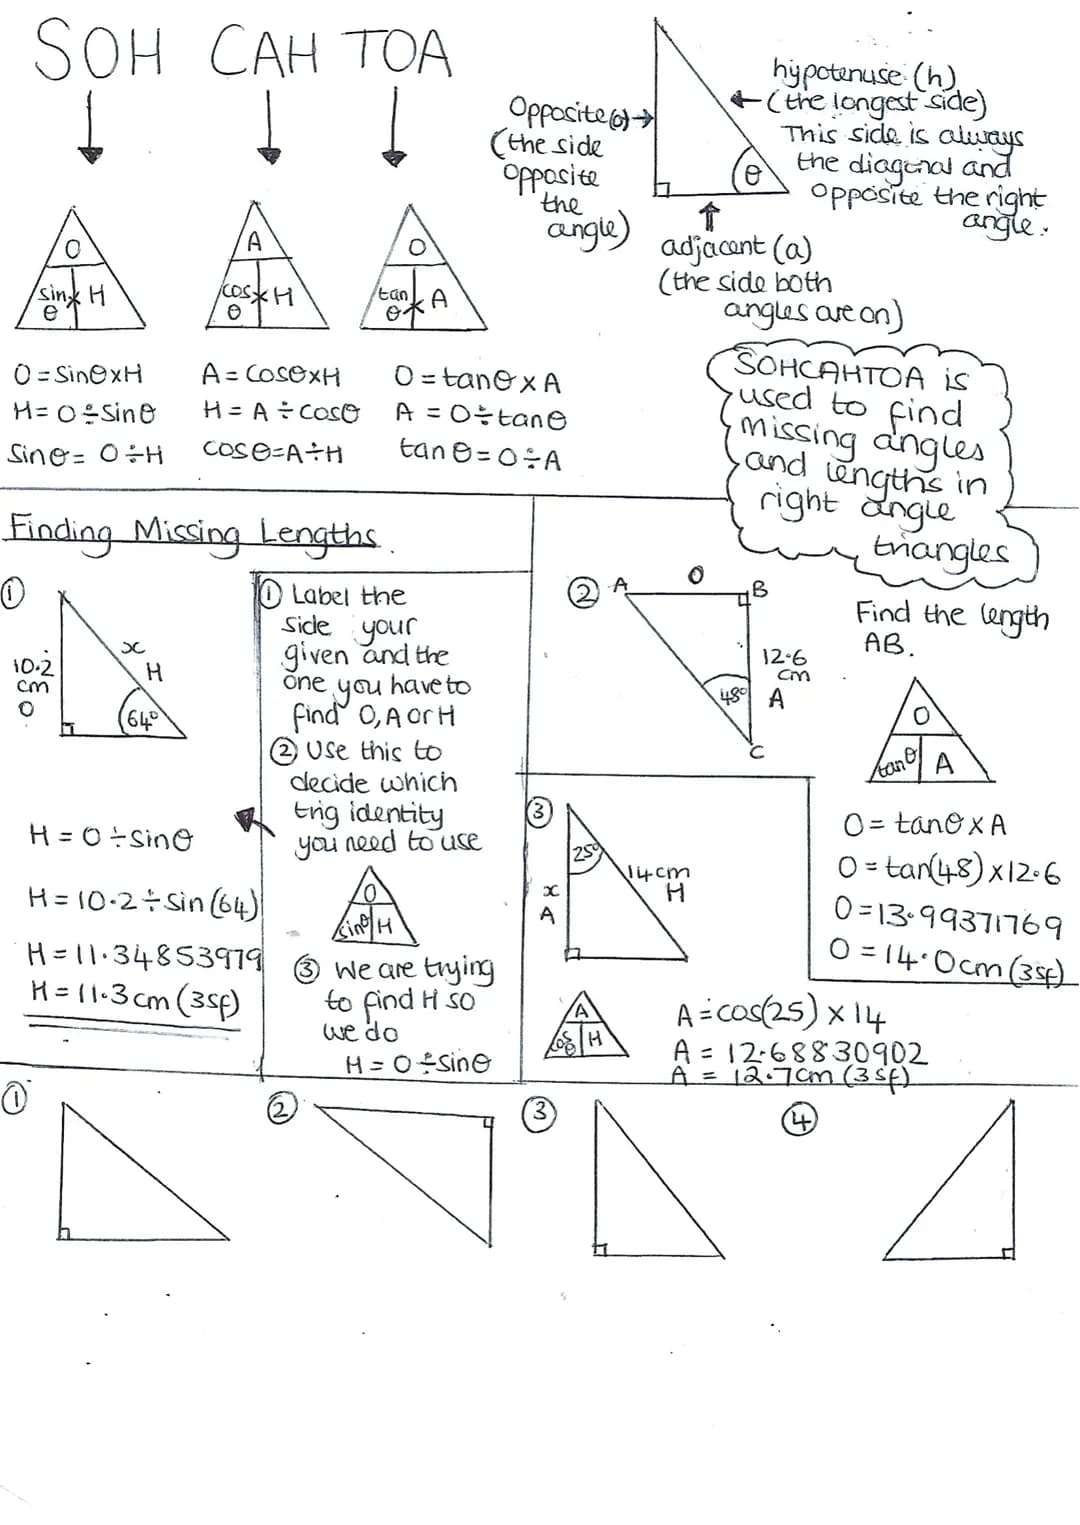 SOH CAH TOA
Opposite (o)
(the side
opposite
the
angle)
hypotenuse (h)
(the longest side)
This side is always
the diagonal and
opposite the right
angle.
θ
adjacent (a)
(the side both
angles are on)
O
sin θ × H
A
cos θ × H
O
tan θ × A
O = Sinθ×H
H = O ÷ Sinθ
Sinθ = O ÷ H
A = Cosθ×H
H = A ÷ Cosθ
cosθ=A÷H
O = tanθ × A
A = O÷tanθ
tanθ = O÷A
SOHCAHTOA is
used to find
missing angles
and lengths in
right angle
triangles
Finding Missing Lengths.
①
10.2
cm
O
x
H
64°
H = O ÷ Sinθ
H = 10.2 ÷ sin (64)
H = 11.34853979
H = 11.3cm (3sf)
① Label the
side your
given and the
one you have to
find O, A or H
② Use this to
decide which
trig identity
you need to use
O
sinθ H
③ We are trying
to find H so
we do
H = O ÷ sinθ
②
A
O
B
12.6
cm
A
48°
C
Find the length
AB.
O
tanθ A
O = tanθ × A
O = tan(48) × 12.6
O = 13.99371769
O = 14.0cm (3sf)
③
25°
14cm
H
x
A
A
cos θ H
A = cos(25) × 14
A = 12.68830902
A = 12.7cm (3sf)
①
②
③
④